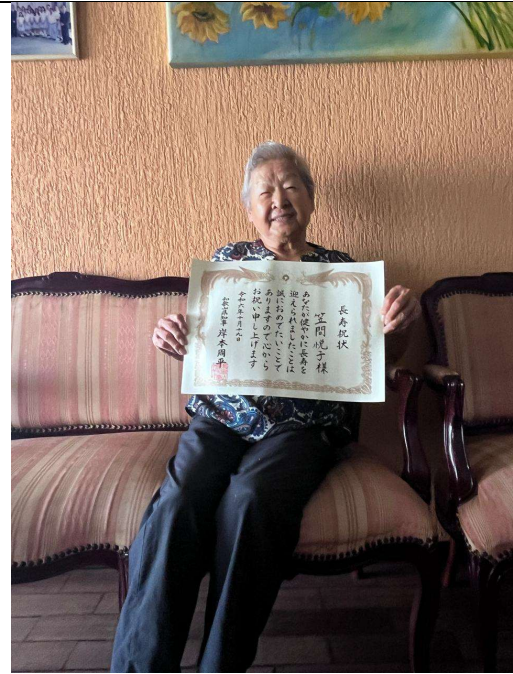 長寿祝状
笠間悦子様
あなたが健やかに長寿を
迎えられましたことは
誠におめでたいことで
ありますので心から
お祝い申し上げます
令和六年十月十九日
和歌山県知事 岸本周平